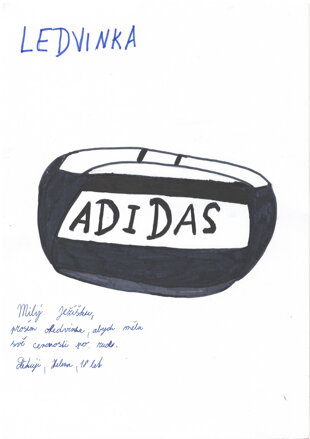 LEDVINKA
ADIDAS
Milý Ježíšku,
prosím o ledvinku, abych měla
své cennosti po ruce.
Děkuji, Helena, 18 let